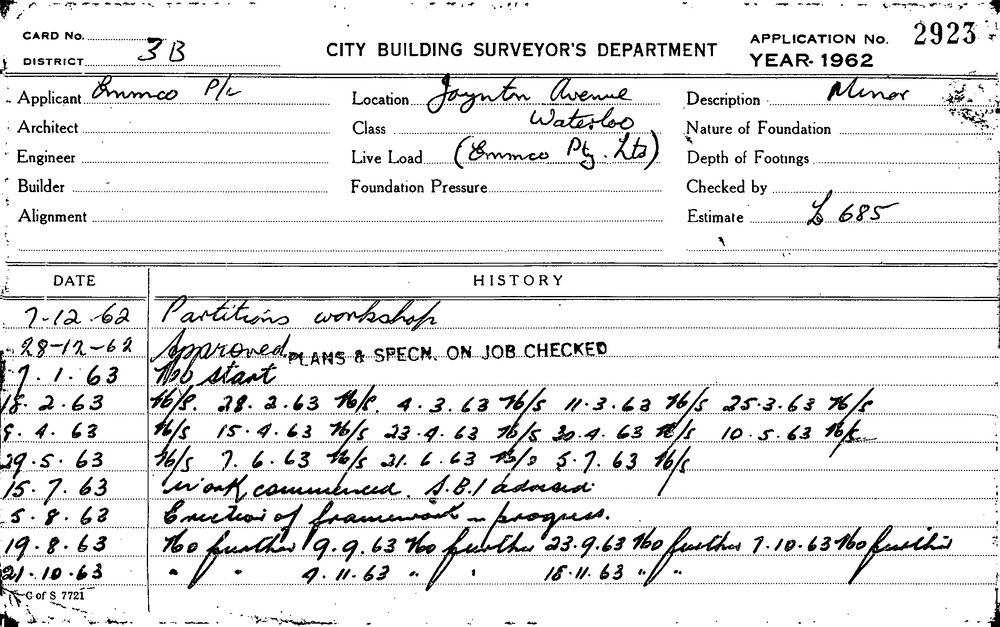 CARD No. APPLICATION No. 2923
DISTRICT 3B CITY BUILDING SURVEYOR'S DEPARTMENT YEAR- 1962
Applicant Emmco P/L Location Joynton Avenue Description Minor
Architect Class Waterloo Nature of Foundation
Engineer Live Load (Emmco Pty. Ltd) Depth of Footings
Builder Foundation Pressure Checked by
Alignment Estimate £ 685
DATE HISTORY
7-12-62 Partitions workshop
28-12-62 Approved PLANS & SPECN. ON JOB CHECKED
7.1.63 No start
18.2.63 N/S. 28.2.63 N/S. 4.3.63 N/S 11.3.63 N/S 25.3.63 N/S
9.4.63 N/S 15.4.63 N/S 23.4.63 N/S 30.4.63 N/S 10.5.63 N/S
29.5.63 N/S 7.6.63 N/S 21.6.63 N/S 5.7.63 N/S
15.7.63 Work commenced. S.B.I advised.
5.8.63 Erection of framework in progress.
19.8.63 No further 9.9.63 No further 23.9.63 No further 7.10.63 No further
21.10.63 " " 4.11.63 " " 18.11.63 " "
C of S 7721